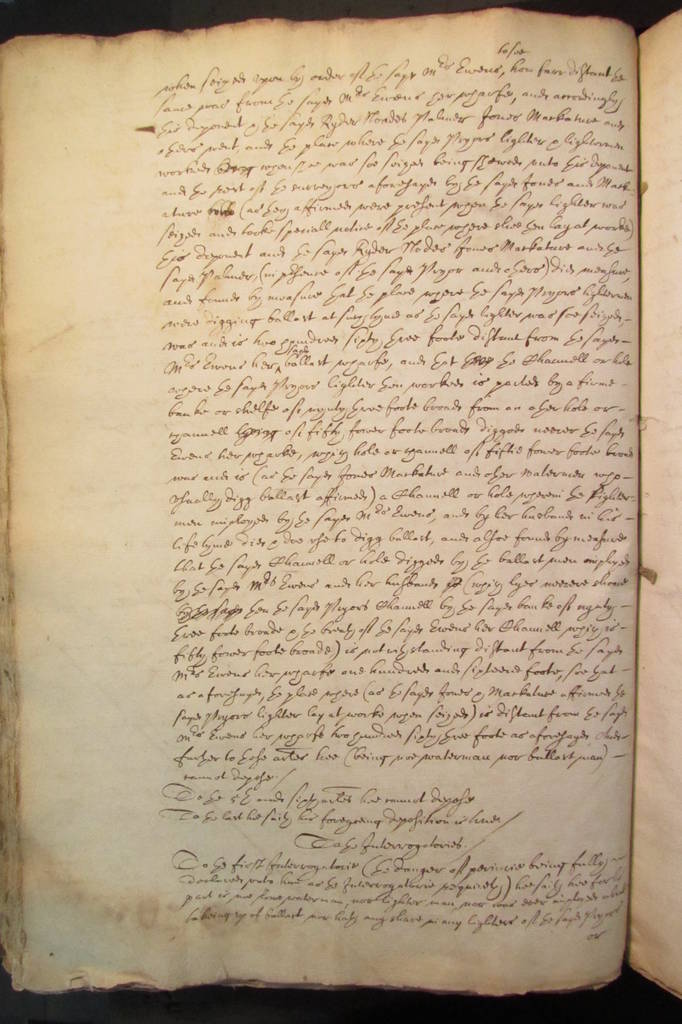 to see
when seized upon by order of the sayd Mrs Ewens, how farr distant the
same was from the sayd Mrs Ewens her wharfe, and accordingly
this deponent & the sayd Ryder Nodes Palmer Jones Markature and
others went, and the place where the sayd Pryors lighter & lightermen
worked when shee was soe seized being shewed unto this deponent
and the rest of the surveyors aforesayd by the sayd Jones and Mark-
ature (as they affirmed were present when the sayd lighter was
seized and tooke speciall notice of the place where shee then lay at worke)
this deponent and the sayd Ryder Nodes Jones Markature and the
sayd Palmer, (in presence of the sayd Pryor and others) did measure,
and found by measure that the place where the sayd Pryors lightermen
were digging ballast at such tyme as the sayd lighter was soe seized,
was and is two hundred sixty three foote distant from the sayd
Mrs Ewens her sayd ballast wharfe, and that the Channell or hole
where the sayd Pryors lighter then worked is parted by a firme
banke or shelfe of nynty three foote broad from an other hole or
channell of fifty fower foote broad digged neerer the sayd
Ewens her wharfe, which hole or channell of fiftie fower foote broad
was and is (as the sayd Jones Markature and other watermen who
usually digg ballast affirmed) a Channell or hole wherein the Lighter-
men imployed by the sayd Mrs Ewens, and by her husband in his
life tyme did & doe use to digg ballast, and alsoe found by measure
that the sayd Channell or hole digged by the ballast men employed
by the sayd Mrs Ewens and her husband (which lyes neerer shoare
then the sayd Pryors Channell by the sayd banke of nynty
three foote broade & the breadth of the sayd Ewens her Channell which is
fifty fower foote broade) is notwithstanding distant from the sayd
Mrs Ewens her wharfe one hundred and sixteene foote, soe that
as aforesayd, the place where (as the sayd Jones & Markature affirmed the
sayd Pryors lighter lay at worke when seized) is distant from the sayd
Mrs Ewens her wharfe two hundred sixty three foote as aforesayd And
further to these articles hee (being noe waterman nor ballast man)
cannot depose./
To the 5th and sixth articles hee cannot depose
To the last hee saith his foregoeing deposition is true/
To the Interrogatories./
To the first Interrogatorie (the danger of periurie being fully
declared unto him as the Interrogatorie requireth) hee saith hee for his
part is noe waterman, nor lighter man, nor was ever imployed about
takeing up of ballast, nor hath any share in any lighters of the sayd Pryors
or